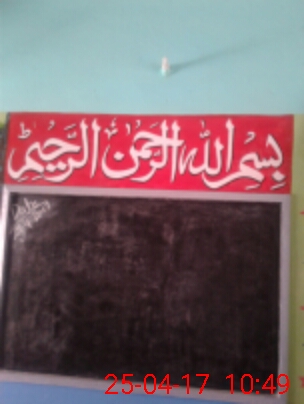 بسم الله الرحمن الرحيم
25-04-17 10:49